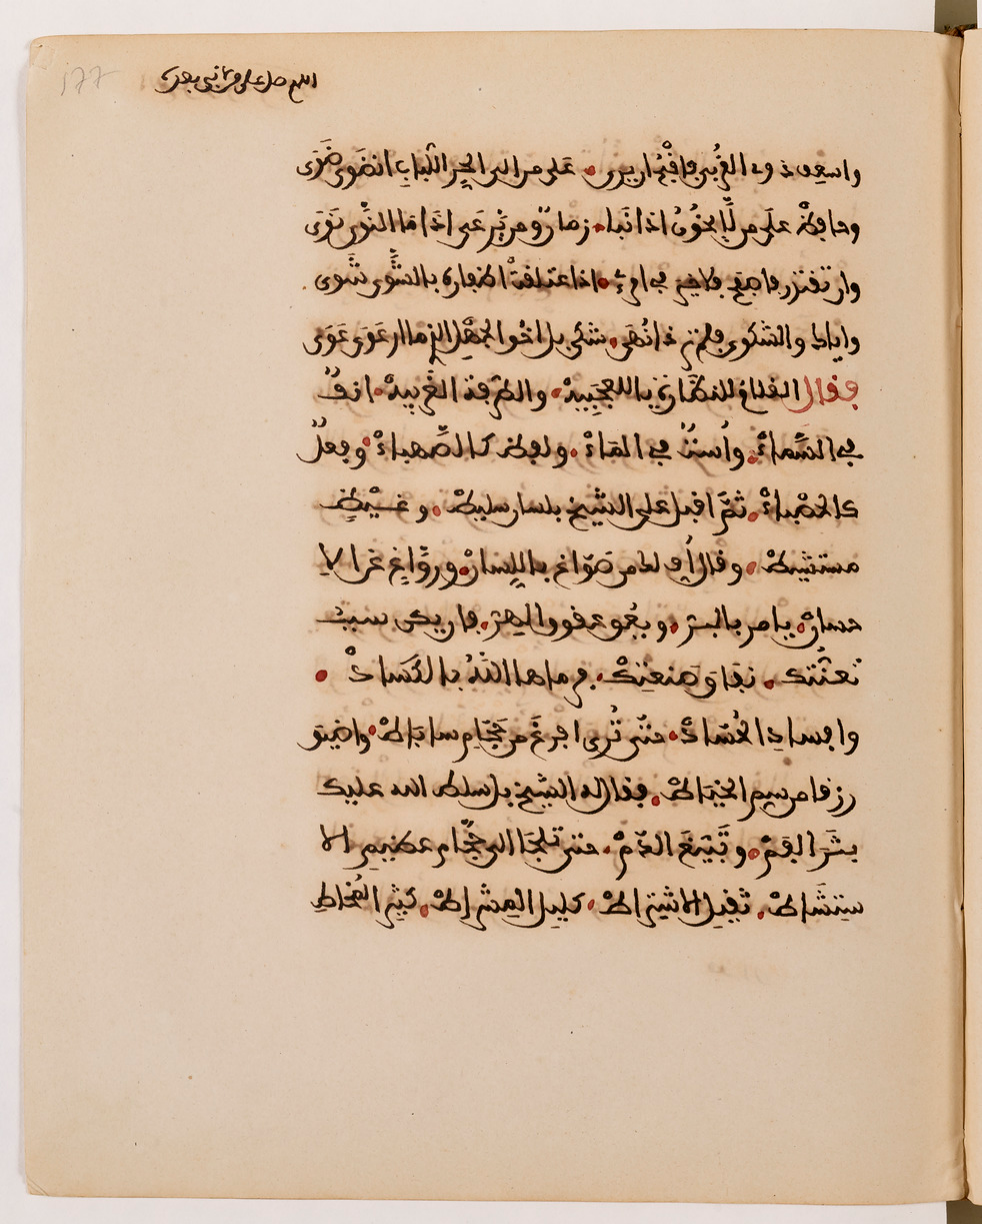 177
اللهم صل على من لا نبي بعده
واسعف ذوي القُربى فاقبح ان يرى على من الى الحر اللُّبابِ انضَوى ضَوَى
وحافِظْ علَى من لَّا يخُونُ اذا نَبا زمان ومن يَرعَى اذَا مَا النَّوى نَوَى
وان تقتدر فاصفح فلا خير في امرئ اذا اعتلقتْ اظفاره بالشَّوى شَوى
واياك والشكوى فلم تر ذا نُهَى شكى بل اخُوا الجَهْلِ الذي ما ارعَوَى عَوَى
فقال الغلام للنظَّارة يا للعجيبةْ والطُرفة الغَريبةْ انفٌ
في السَّماءْ واُستٌ في المَاءْ ولفظ كالصَّهباءْ وفعلٌ
كالحصْباءْ ثمَّ اقبل على الشيخ بلسان سليطْ وغيْظٍ
مستشيطْ وقال اُف لك من صَوّاغ باللِّسانْ وروَّاغٍ عن الا
حسانْ يامر بالبر ويعُق عقوق الهر فان يكن سبب
تعنُّتك نفاق صنعتِكْ فرماها اللهُ بالكَسادْ
وافسادِ الحُسّادْ حتّى تُرى افرغَ من حَجّامِ ساباطْ واضيق
رزقا من سم الخيَاطْ فقال له الشيخ بل سلط الله عليك
بثَرَ الفمْ وتَبيّغَ الدّمْ حتى تلجَا الى حجَّام عظيم الا
ستشَاطْ ثقيلِ الاشتراطْ كليل المِشراطْ كثير المُخاطِ